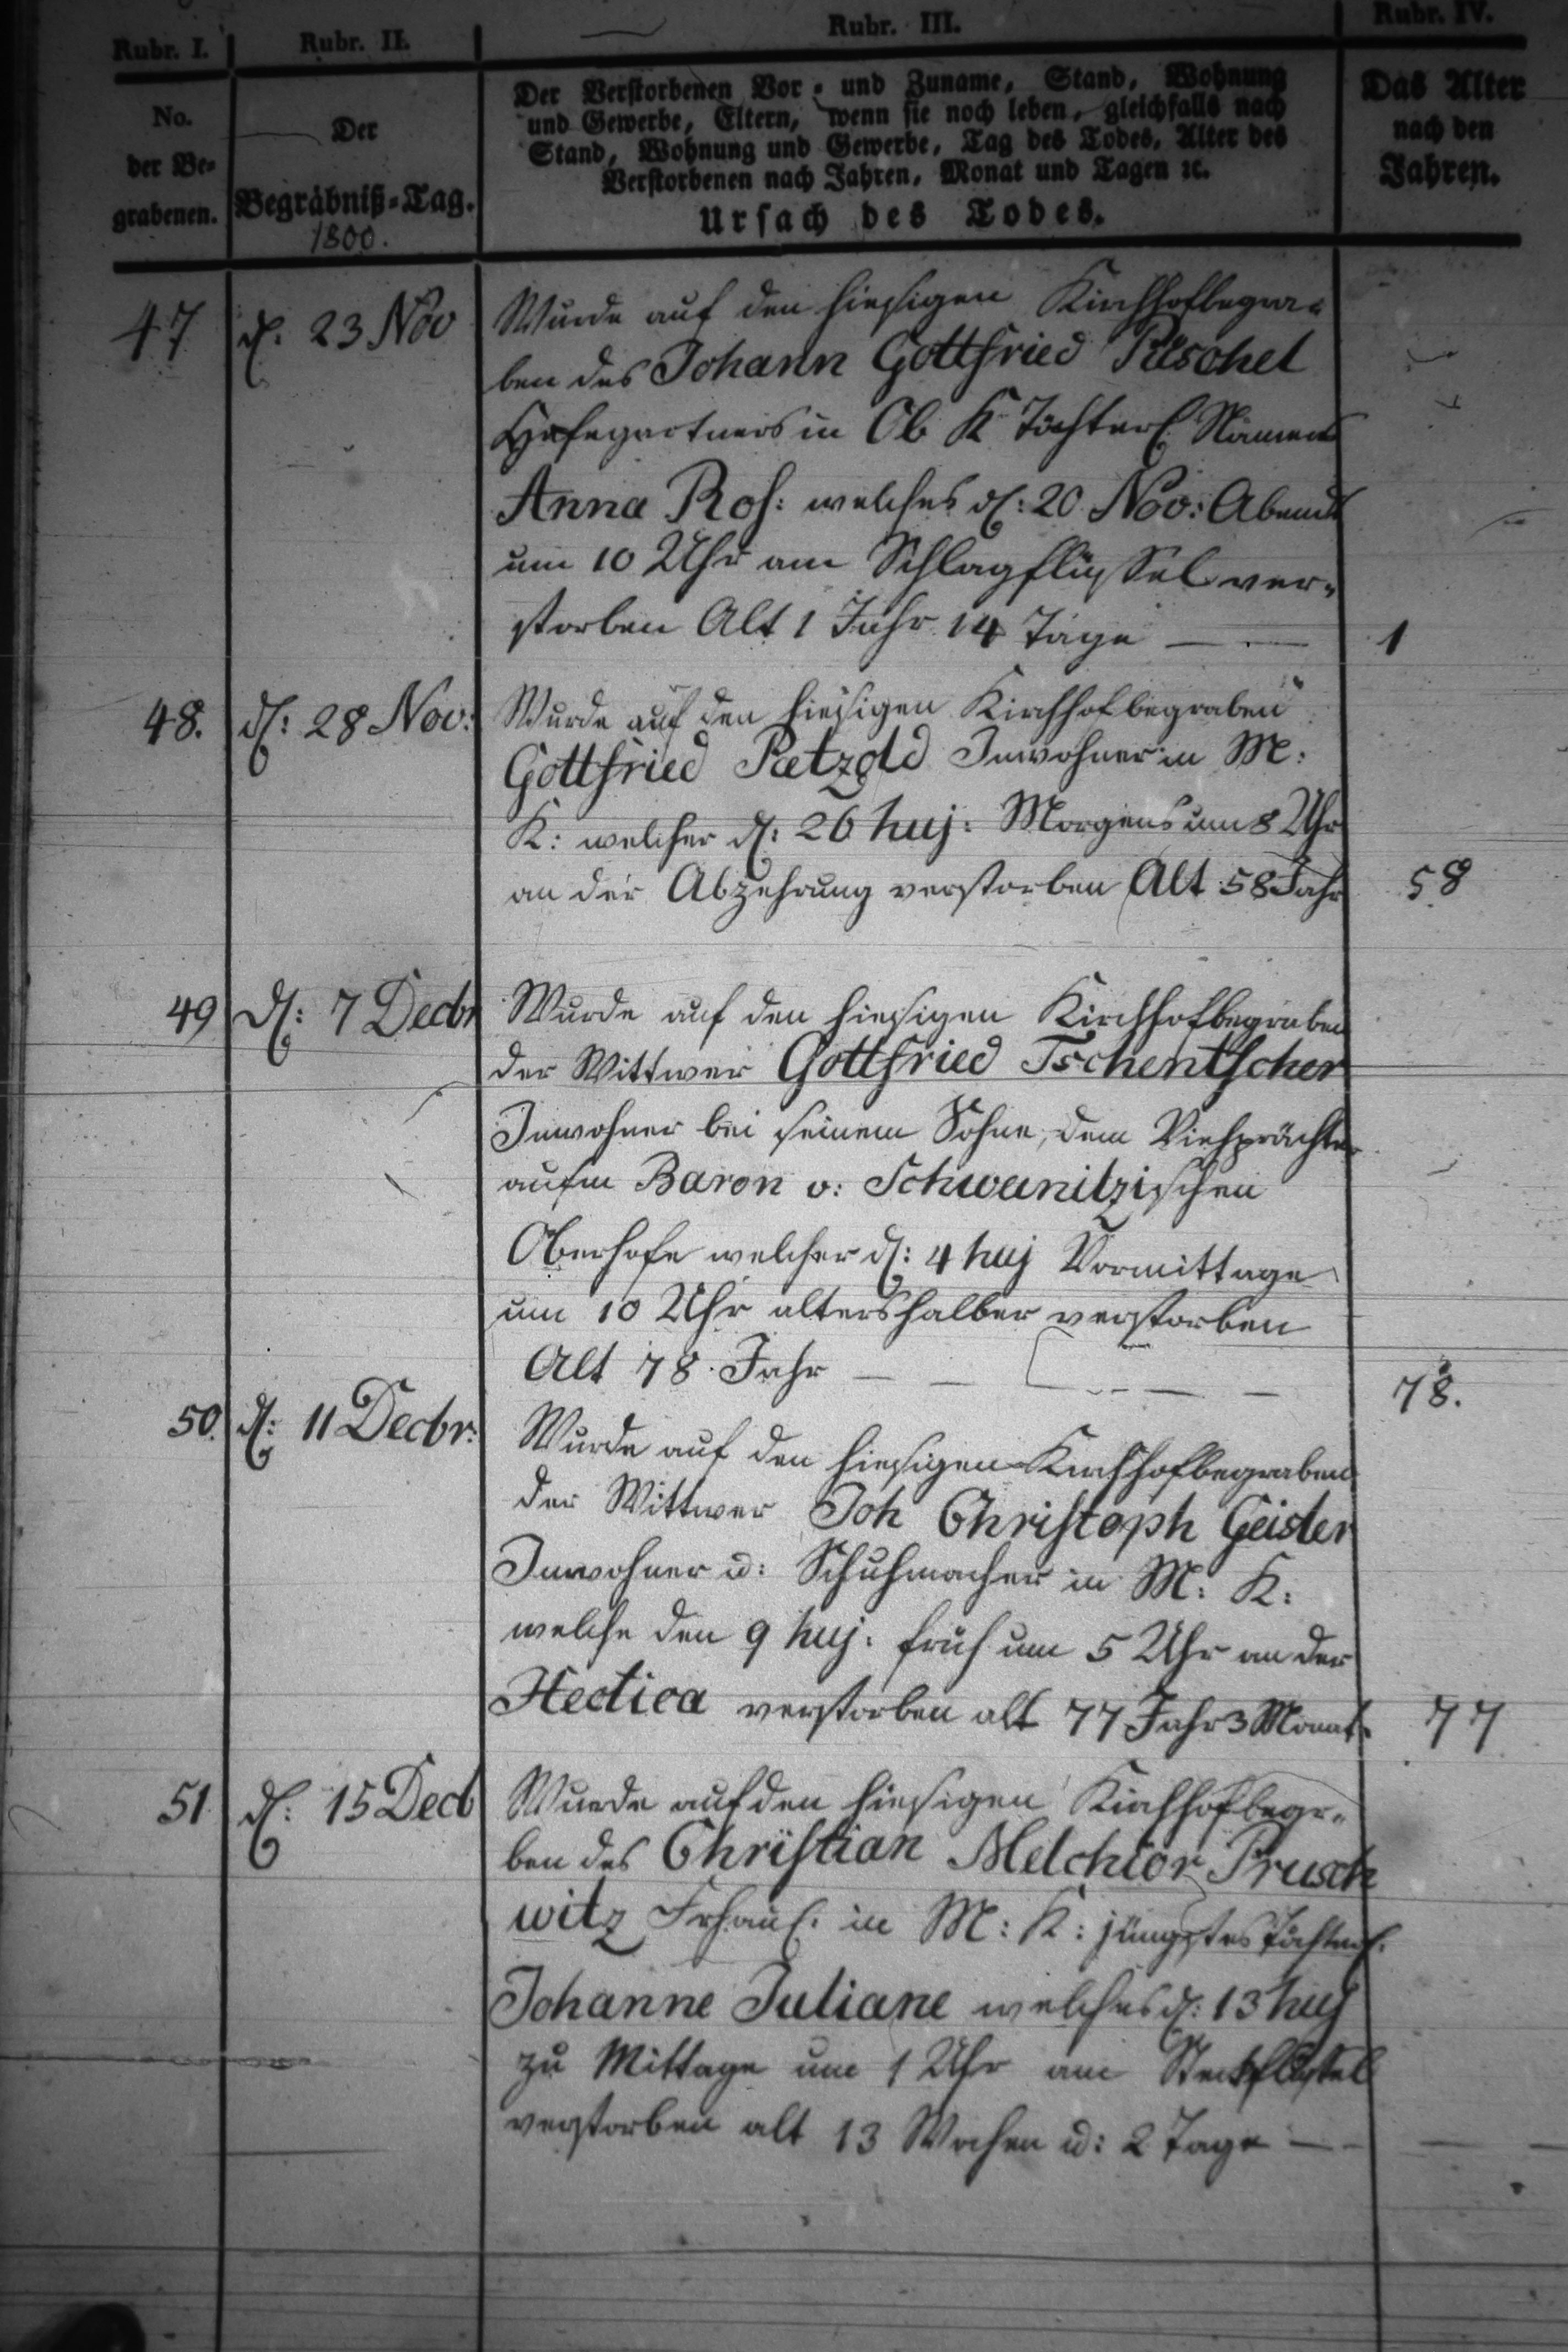 Rubr. I. Rubr. II. Rubr. III. Rubr. IV.
No.
der Be-
grabenen.
Der
Begräbniß-Tag.
1800.
Der Verstorbenen Vor- und Zuname, Stand, Wohnung
und Gewerbe, Eltern, wenn sie noch leben, gleichfalls nach
Stand, Wohnung und Gewerbe, Tag des Todes, Alter des
Verstorbenen nach Jahren, Monat und Tagen ꝛc.
Ursach des Todes.
Das Alter
nach den
Jahren.
47 d. 23 Nov Wurde auf den hiesigen Kirchhof begra-
ben des Johann Gottfried Püschel
Hofegärtners in Ob K Töchterl. Namens
Anna Ros: welches d: 20 Nov: Abends
um 10 Uhr am Schlagflüssel ver-
storben Alt 1 Jahr 14 Tage 1
48. d: 28 Nov: Wurde auf den hiesigen Kirchhof begraben
Gottfried Paetzold Inwohner in M:
K: welcher d: 26 huj: Morgens um 8 Uhr
an der Abzehrung verstorben Alt 58 Jahr 58
49 d: 7 Decbr Wurde auf den hiesigen Kirchhof begraben
der Wittwer Gottfried Tschentscher
Inwohner bei seinem Sohne, dem Viehpächter
aufm Baron v: Schweinitzischen
Oberhofe welcher d: 4 huj Vormittage
um 10 Uhr altershalber verstorben
Alt 78 Jahr 78.
50. d: 11 Decbr: Wurde auf den hiesigen Kirchhof begraben
der Wittwer Joh Christoph Geisler
Inwohner u: Schuhmacher in M: K:
welche den 9 huj: früh um 5 Uhr an der
Hectica verstorben alt 77 Jahr 3 Monat 77
51 d: 15 Decb Wurde auf den hiesigen Kirchhof begr-
ben des Christian Melchior Prusch
witz Frhäusl. in M: K: jüngstes Töchterl.
Johanne Juliane welches d: 13 huj
zu Mittage um 1 Uhr am Steckflüssel
verstorben alt 13 Wochen u: 2 Tage